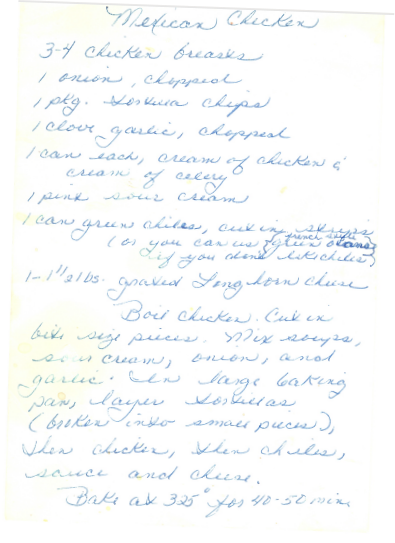 Mexican Chicken
3-4 chicken breasts
1 onion, chopped
1 pkg. tortilla chips
1 clove garlic, chopped
1 can each, cream of chicken &
cream of celery
1 pint sour cream
1 can green chiles, cut in strips
(or you can use french style green beans
if you don't like chiles)
1-1 1/2 lbs. grated Longhorn cheese
Boil chicken. Cut in
bite size pieces. Mix soups,
sour cream, onion, and
garlic. In large baking
pan, layer tortillas
(broken into small pieces),
then chicken, then chiles,
sauce and cheese.
Bake at 325° for 40-50 min.